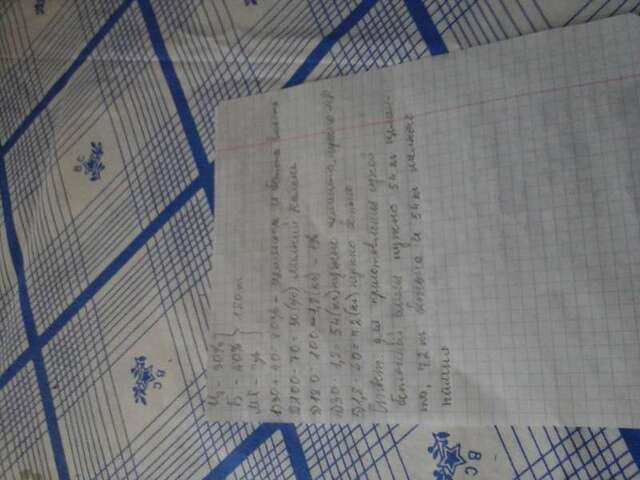 Ц - 30%
Б - 40% } 180 т
МК - ?%
1) 30 + 40 = 70% - цемента и бетона вместе
2) 100 - 70 = 30 (%) мелкий камень
3) 180 : 100 = 1,8 (кг) - 1%
4) 30 · 1,8 = 54 (кг) нужно цемента, нужно МК
5) 1,8 · 40 = 72 (кг) нужно бетона
Ответ: для приготовления сухой
бетонной смеси нужно 54 т цемен-
та, 72 т бетона и 54 т мелкого
камня
ВС
ВС
ВС